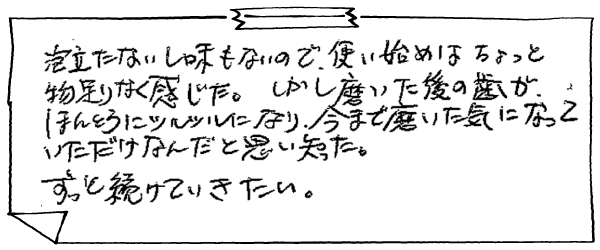 泡立たないし味もないので、使い始めはちょっと
物足りなく感じた。しかし磨いた後の歯が、
ほんとうにツルツルになり、今まで磨いた気になって
いただけなんだと思い知った。
ずっと続けていきたい。